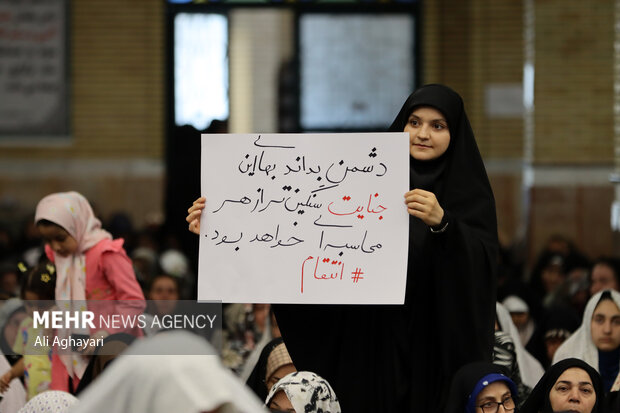 دشمن بداند بهای این
جنایت سنگین تر از هر
محاسبه ای خواهد بود.
#انتقام
MEHR NEWS AGENCY
Ali Aghayari